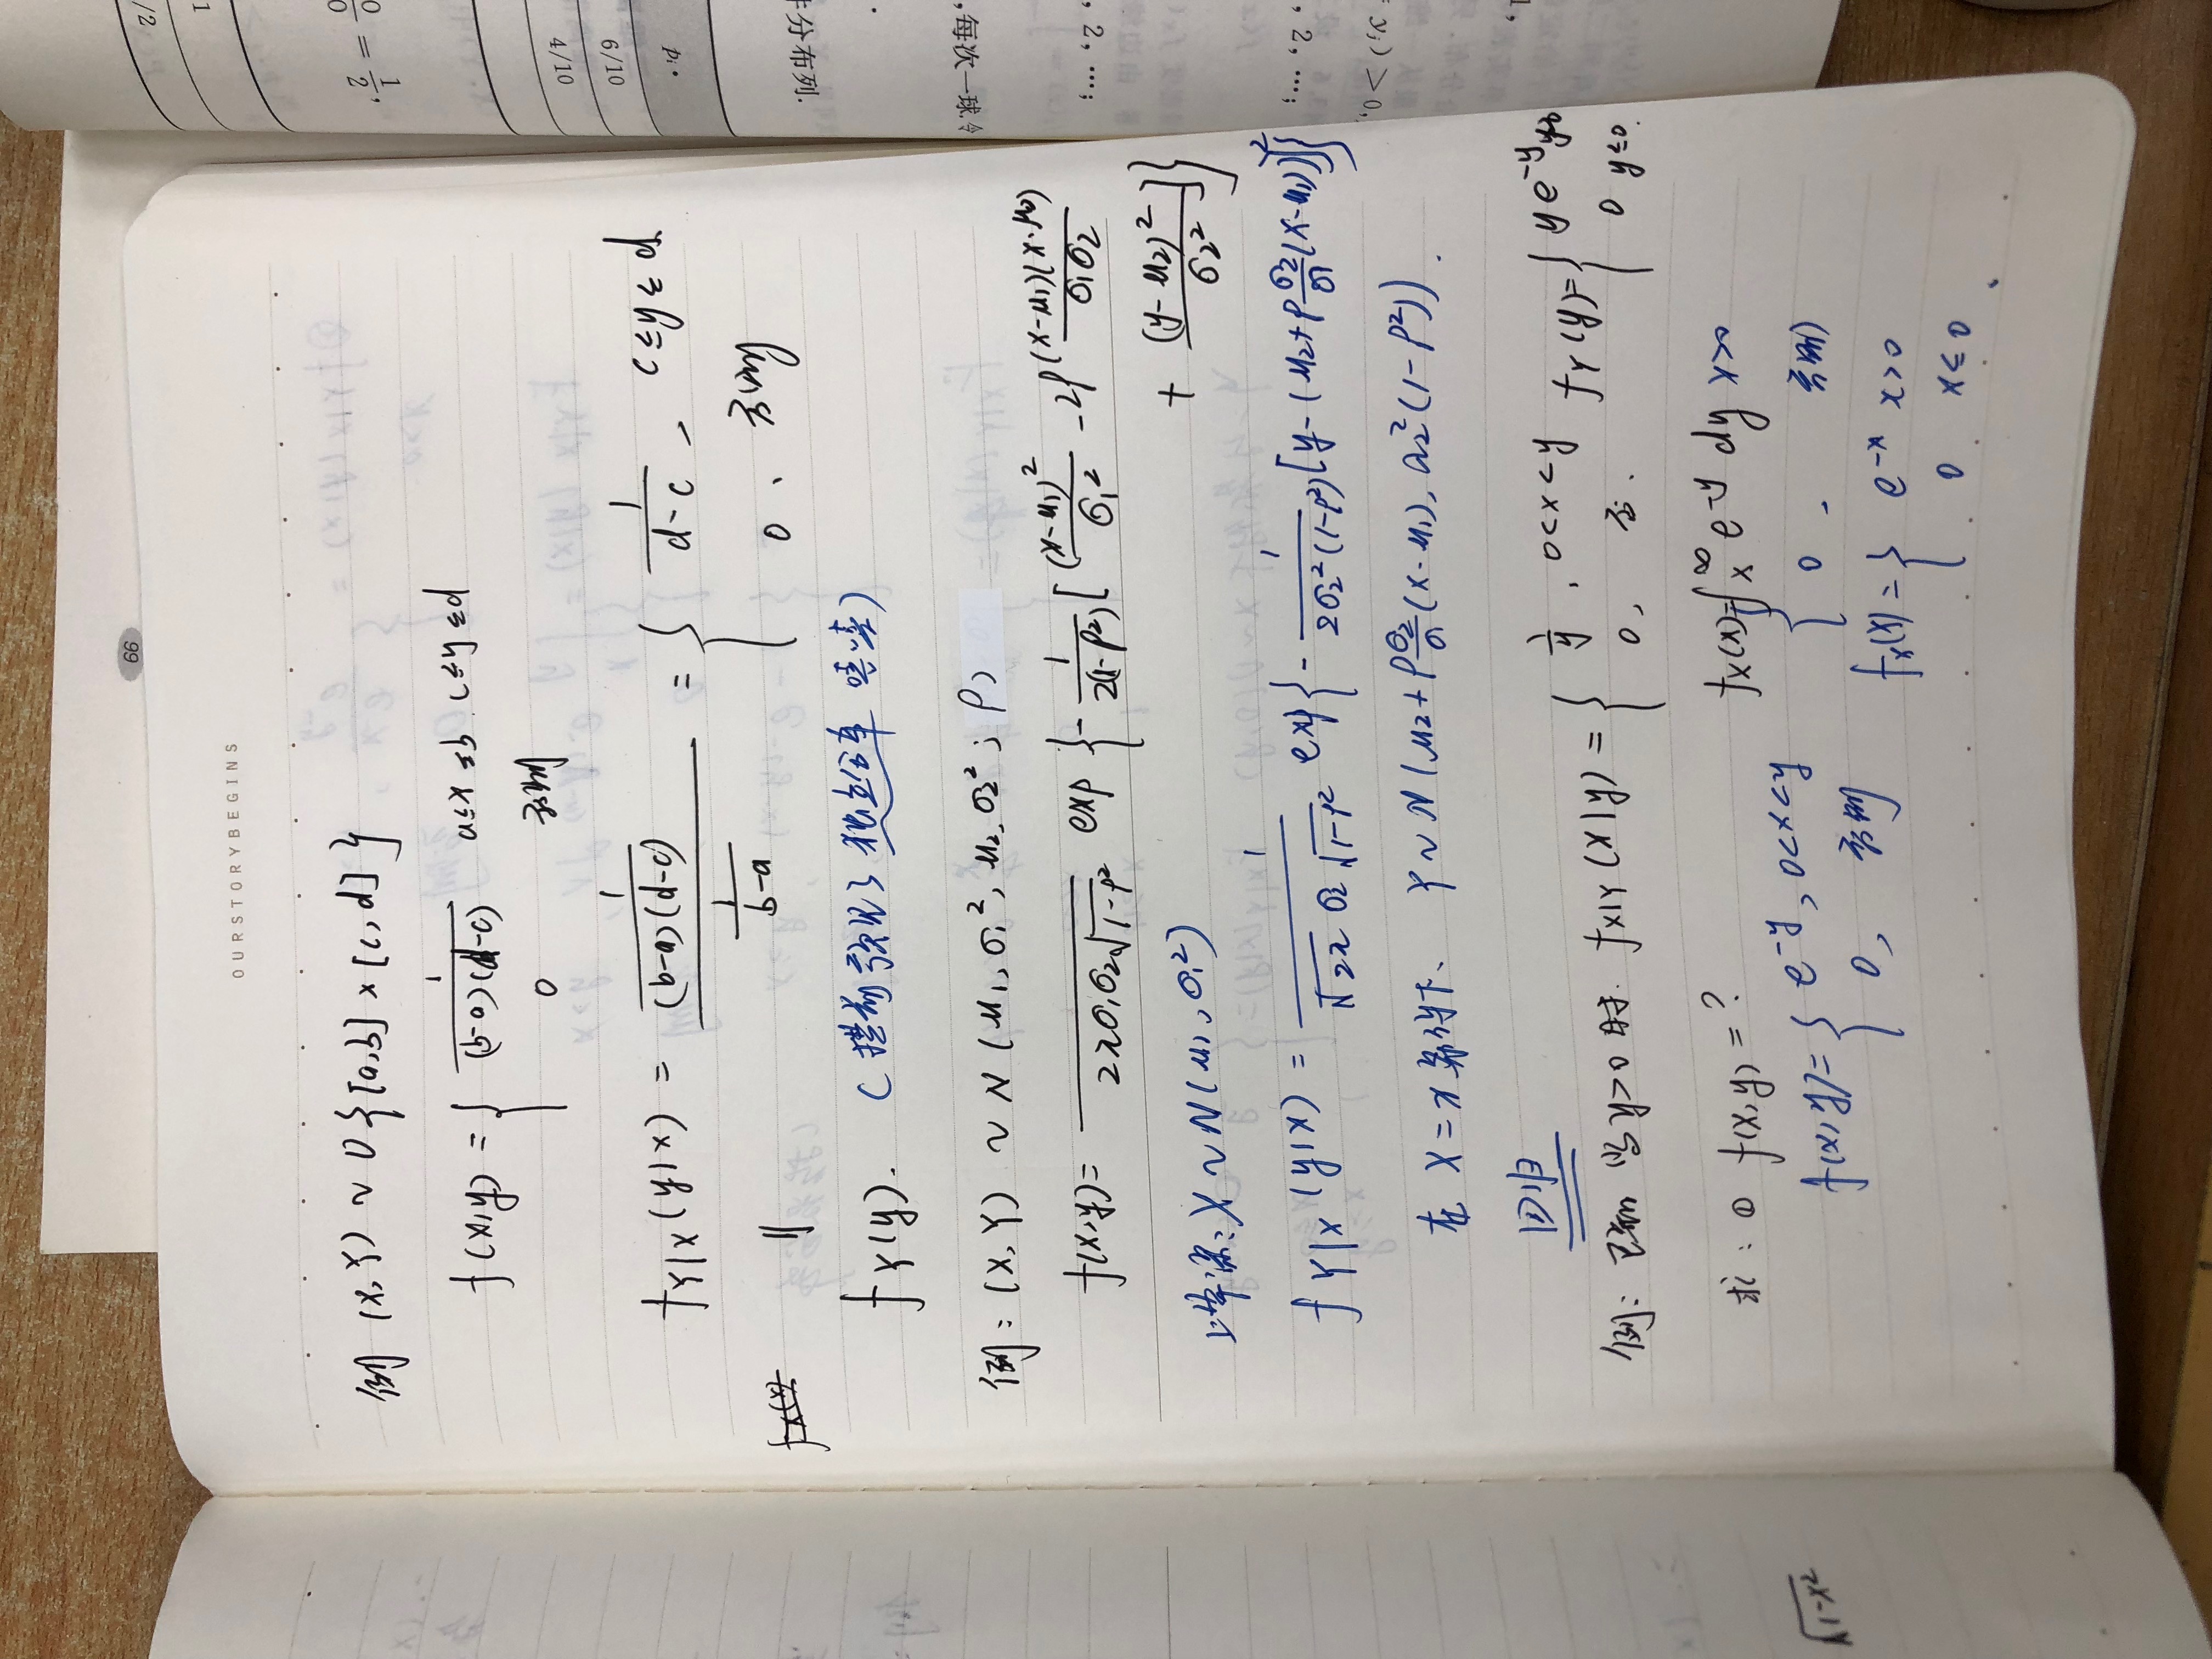 66
OURSTORYBEGINS
例 (X,Y) ~ U{[a,b]×[c,d]}
f(x,y) = { 1/((b-a)(d-c)) a≤x≤b, c≤y≤d
0 否则
f_{Y|X}(y|x) = (1/((b-a)(d-c)))/(1/(b-a)) = { 1/(d-c), c≤y≤d.
0, 否则
f_X(x) ||
f_Y(y). (提前预见了独立分布 嘻嘻)
例: (X,Y) ~ N(μ₁,σ₁²,μ₂,σ₂²;ρ)
f(x,y)= /(2πσ₁σ₂√(1-ρ²)) exp{-1/(2(1-ρ²))[(x-μ₁)²/σ₁² -2ρ(x-μ₁)(x-μ₂)/(σ₁σ₂)
+ (y-μ₂)²/σ₂²]}
X~N(μ₁,σ₁²)
f_{Y|X}(y|x) = 1/(√2π σ₂√(1-ρ²)) exp{-1/(2σ₂²(1-ρ²))[y-(μ₂+ρσ₂/σ₁(x-μ₁))]²}
在 X=x 条件下、 Y~N(μ₂+ρσ₂/σ₁(x-μ₁),σ₂²(1-ρ²)).
回归
例: 已知 当y>0时. f_{X|Y}(x|y) = { 1/y, 0<x<y f_Y(y)= { ye^{-y} y>0
0, 否. 0 y≤0.
求: ① f(x,y)=? f_X(x)=∫_x^∞ e^{-y} dy x>0
f(x,y)= { e^{-y}, 0<x<y { 0, 否则
0, 否则 f_X(x) = { e^{-x} x>0
0 x≤0
√(1-x²)
/2
1
= 1/2,
4/10
6/10
p_i·
分布列.
,每次一球,令
, 2, …;
, 2, …;
y_i) > 0,
1,